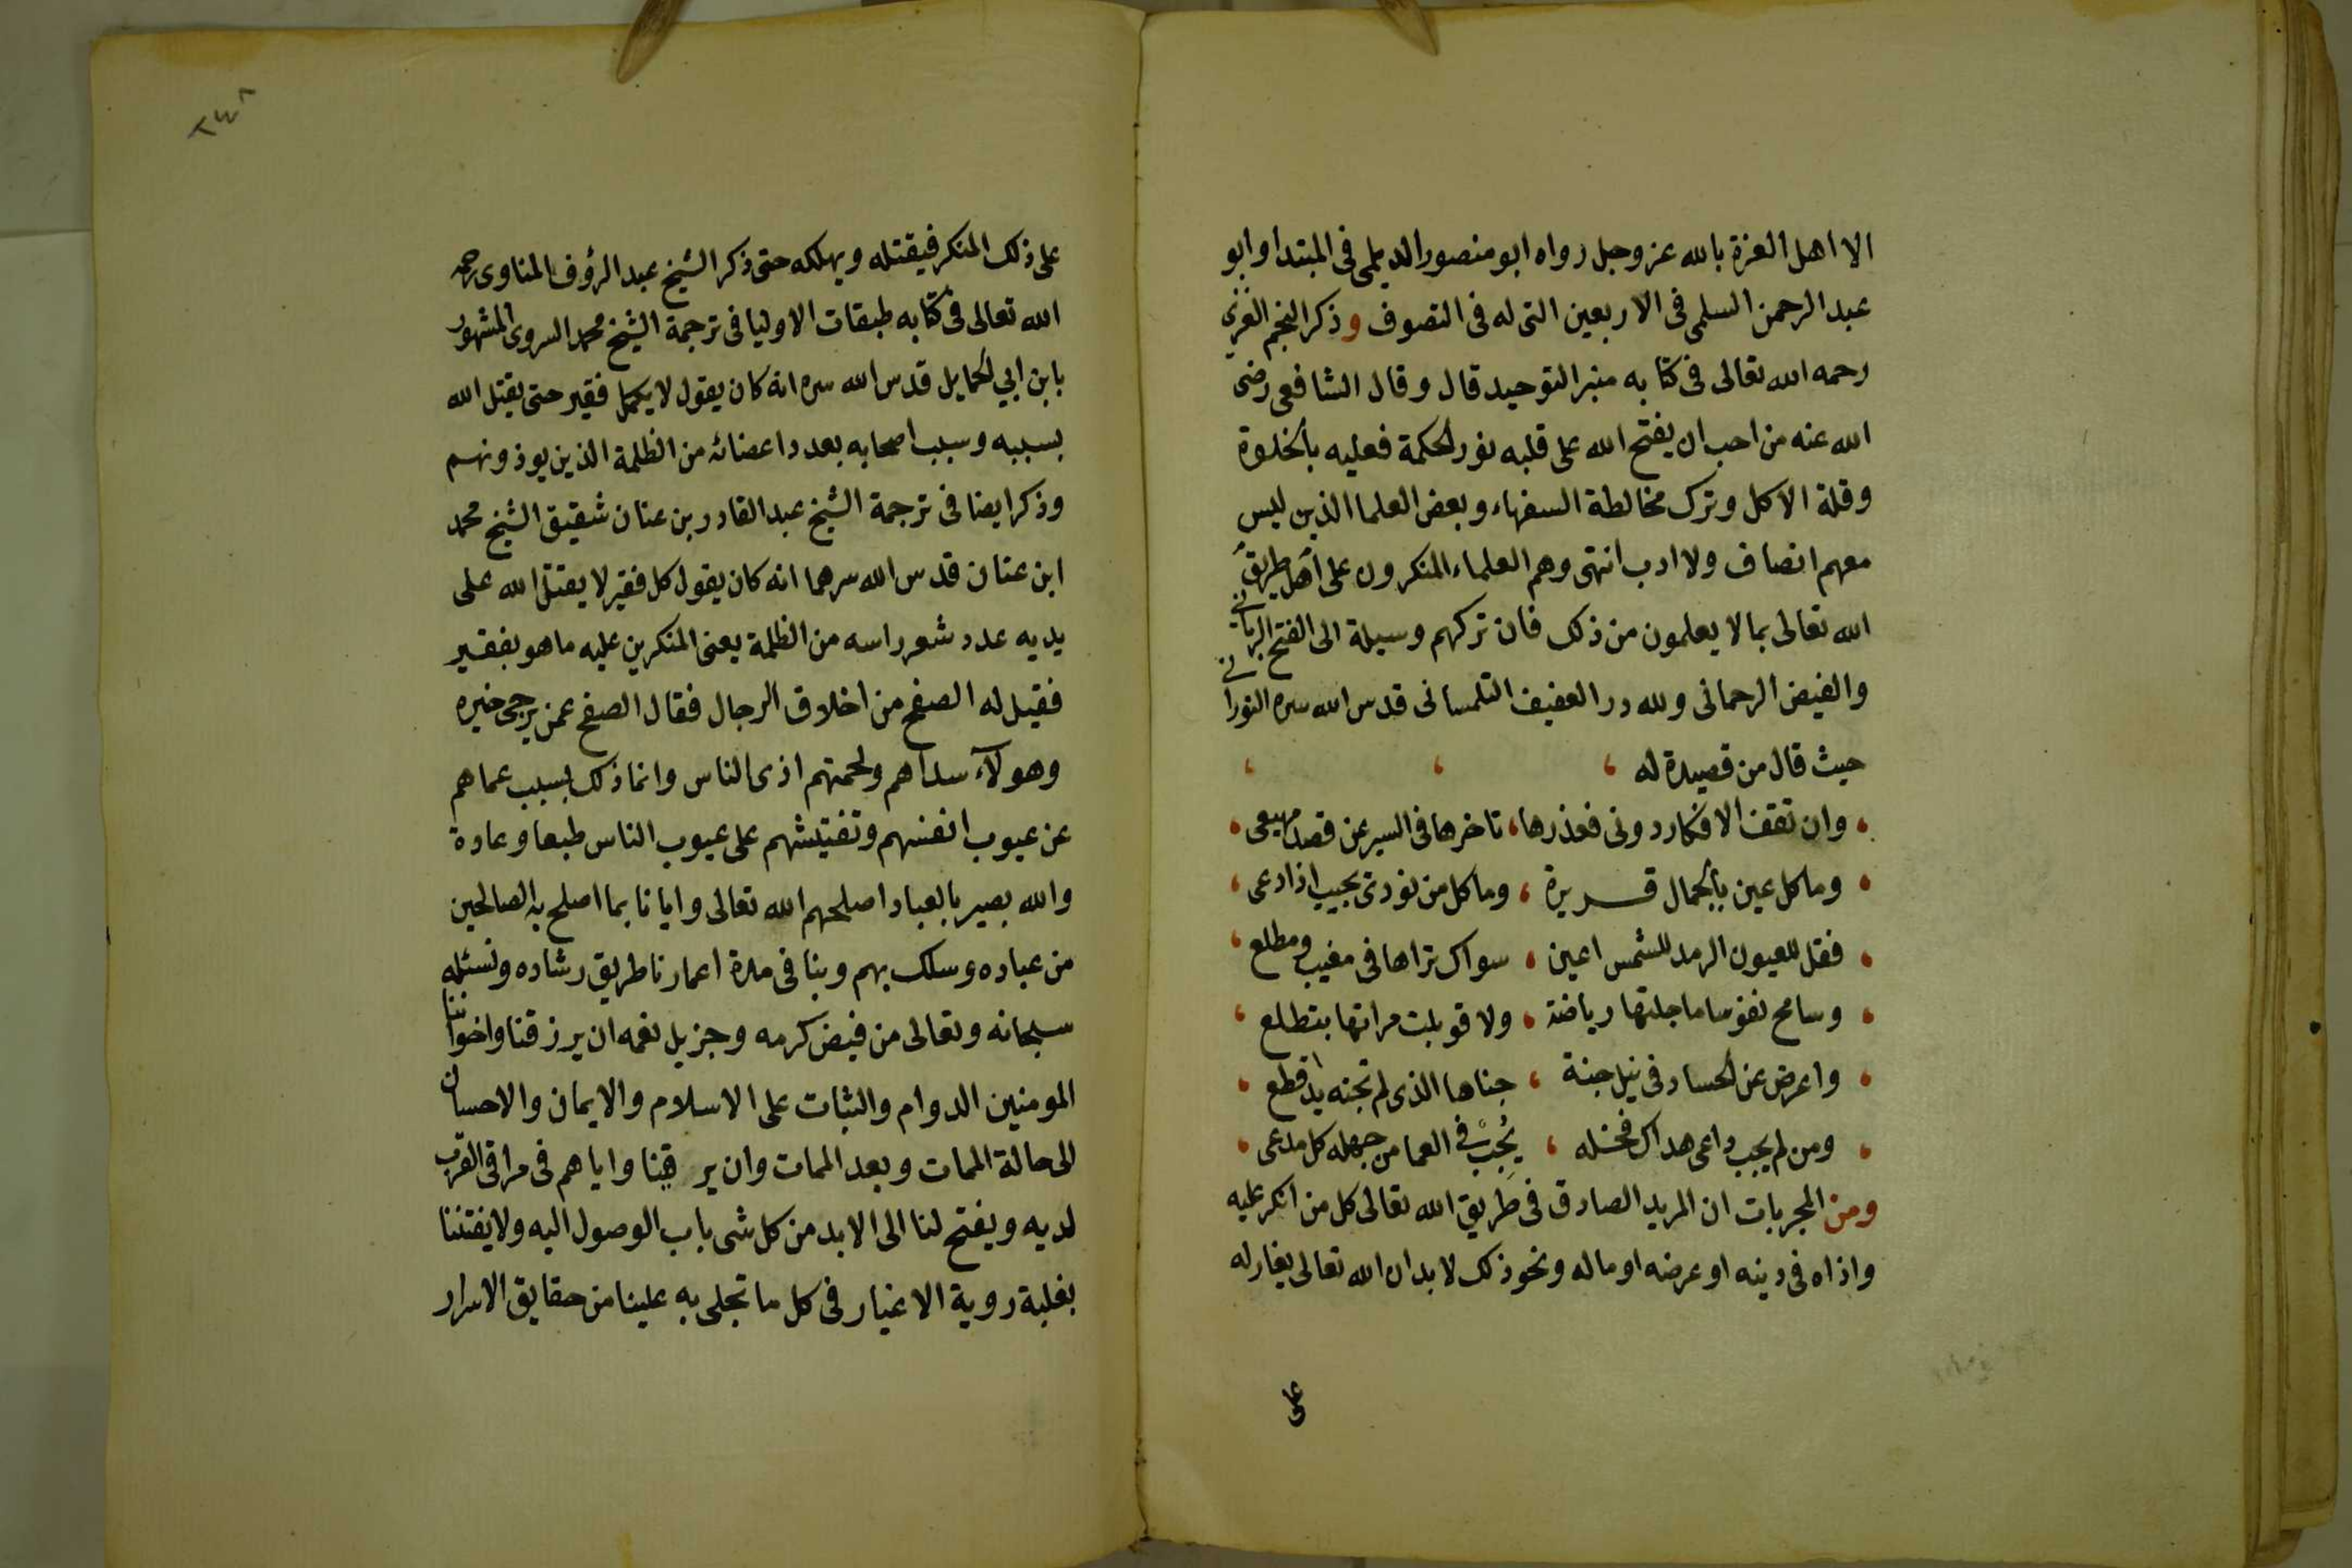 الا اهل العزة بالله عز وجل رواه ابو منصور الديلمى فى المبتدا وابو
عبد الرحمن السلمى فى الاربعين التى له فى التصوف وذكر النجم الغزى
رحمه الله تعالى فى كتابه منبر التوحيد قال وقال الشافعى رضى
الله عنه من احب ان يفتح الله على قلبه نور الحكمة فعليه بالخلوة
وقلة الاكل وترك مخالطة السفهاء وبعض العلما الذين ليس
معهم انصاف ولا ادب انتهى وهم العلماء المنكرون على اهل طريق
الله تعالى بما لا يعلمون من ذلك فان تركهم وسيلة الى الفتح الربانى
والفيض الرحمانى ولله در العفيف التلمسانى قدس الله سره النورانى
حيث قال من قصيدة له
وان تقف الافكار دونى فعذرها، تاخرها فى السير عن قصد مهيعى
وما كل عين بالجمال قريرة، وما كل من نودى يجيب اذا دعى
فقل للعيون الرمد للشمس اعين، سواك تراها فى مغيب ومطلع
وسامح نفوسا ما جلتها رياضة، ولا قوبلت مراتها بتطلع
واعرض عن الحساد فى نيل جنة، جناها الذى لم تجنه يد اقطع
ومن لم يجب داعى هداك فخله، يُجِبْ فى العما من جهله كل مدعى
ومن المجربات ان المريد الصادق فى طريق الله تعالى كل من انكر عليه
واذاه فى دينه او عرضه او ماله ونحو ذلك لا بد ان الله تعالى يغار له
على
٢٤٨
على ذلك المنكر فيقتله ويهلكه حتى ذكر الشيخ عبد الرؤف المناوى رحمه
الله تعالى فى كتابه طبقات الاوليا فى ترجمة الشيخ محمد السروى المشهور
بابن ابي الحمايل قدس الله سره انه كان يقول لا يكمل فقير حتى يقتل الله
بسببه وسبب اصحابه بعدد اعضائه من الظلمة الذين يوذونهم
وذكر ايضا فى ترجمة الشيخ عبد القادر بن عنان شقيق الشيخ محمد
ابن عنان قدس الله سرهما انه كان يقول كل فقير لا يقتل الله على
يديه عدد شعر راسه من الظلمة يعنى المنكرين عليه ما هو بفقير
فقيل له الصفح من اخلاق الرجال فقال الصفح عمن يرجى خيره
وهولآء سداهم ولحمتهم اذى الناس وانما ذلك بسبب عماهم
عن عيوب انفسهم وتفتيشهم على عيوب الناس طبعا وعادة
والله بصير بالعباد اصلحهم الله تعالى وايانا بما اصلح به الصالحين
من عباده وسلك بهم وبنا فى مدة اعمارنا طريق رشاده ونسئله
سبحانه وتعالى من فيض كرمه وجزيل نعمه ان يرزقنا واخواننا
المومنين الدوام والثبات على الاسلام والايمان والاحسان
الى حالة الممات وبعد الممات وان يرقينا واياهم فى مراقى القرب
لديه ويفتح لنا الى الابد من كل شى باب الوصول اليه ولا يفتننا
بغلبة روية الاغيار فى كل ما تجلى به علينا من حقايق الاسرار